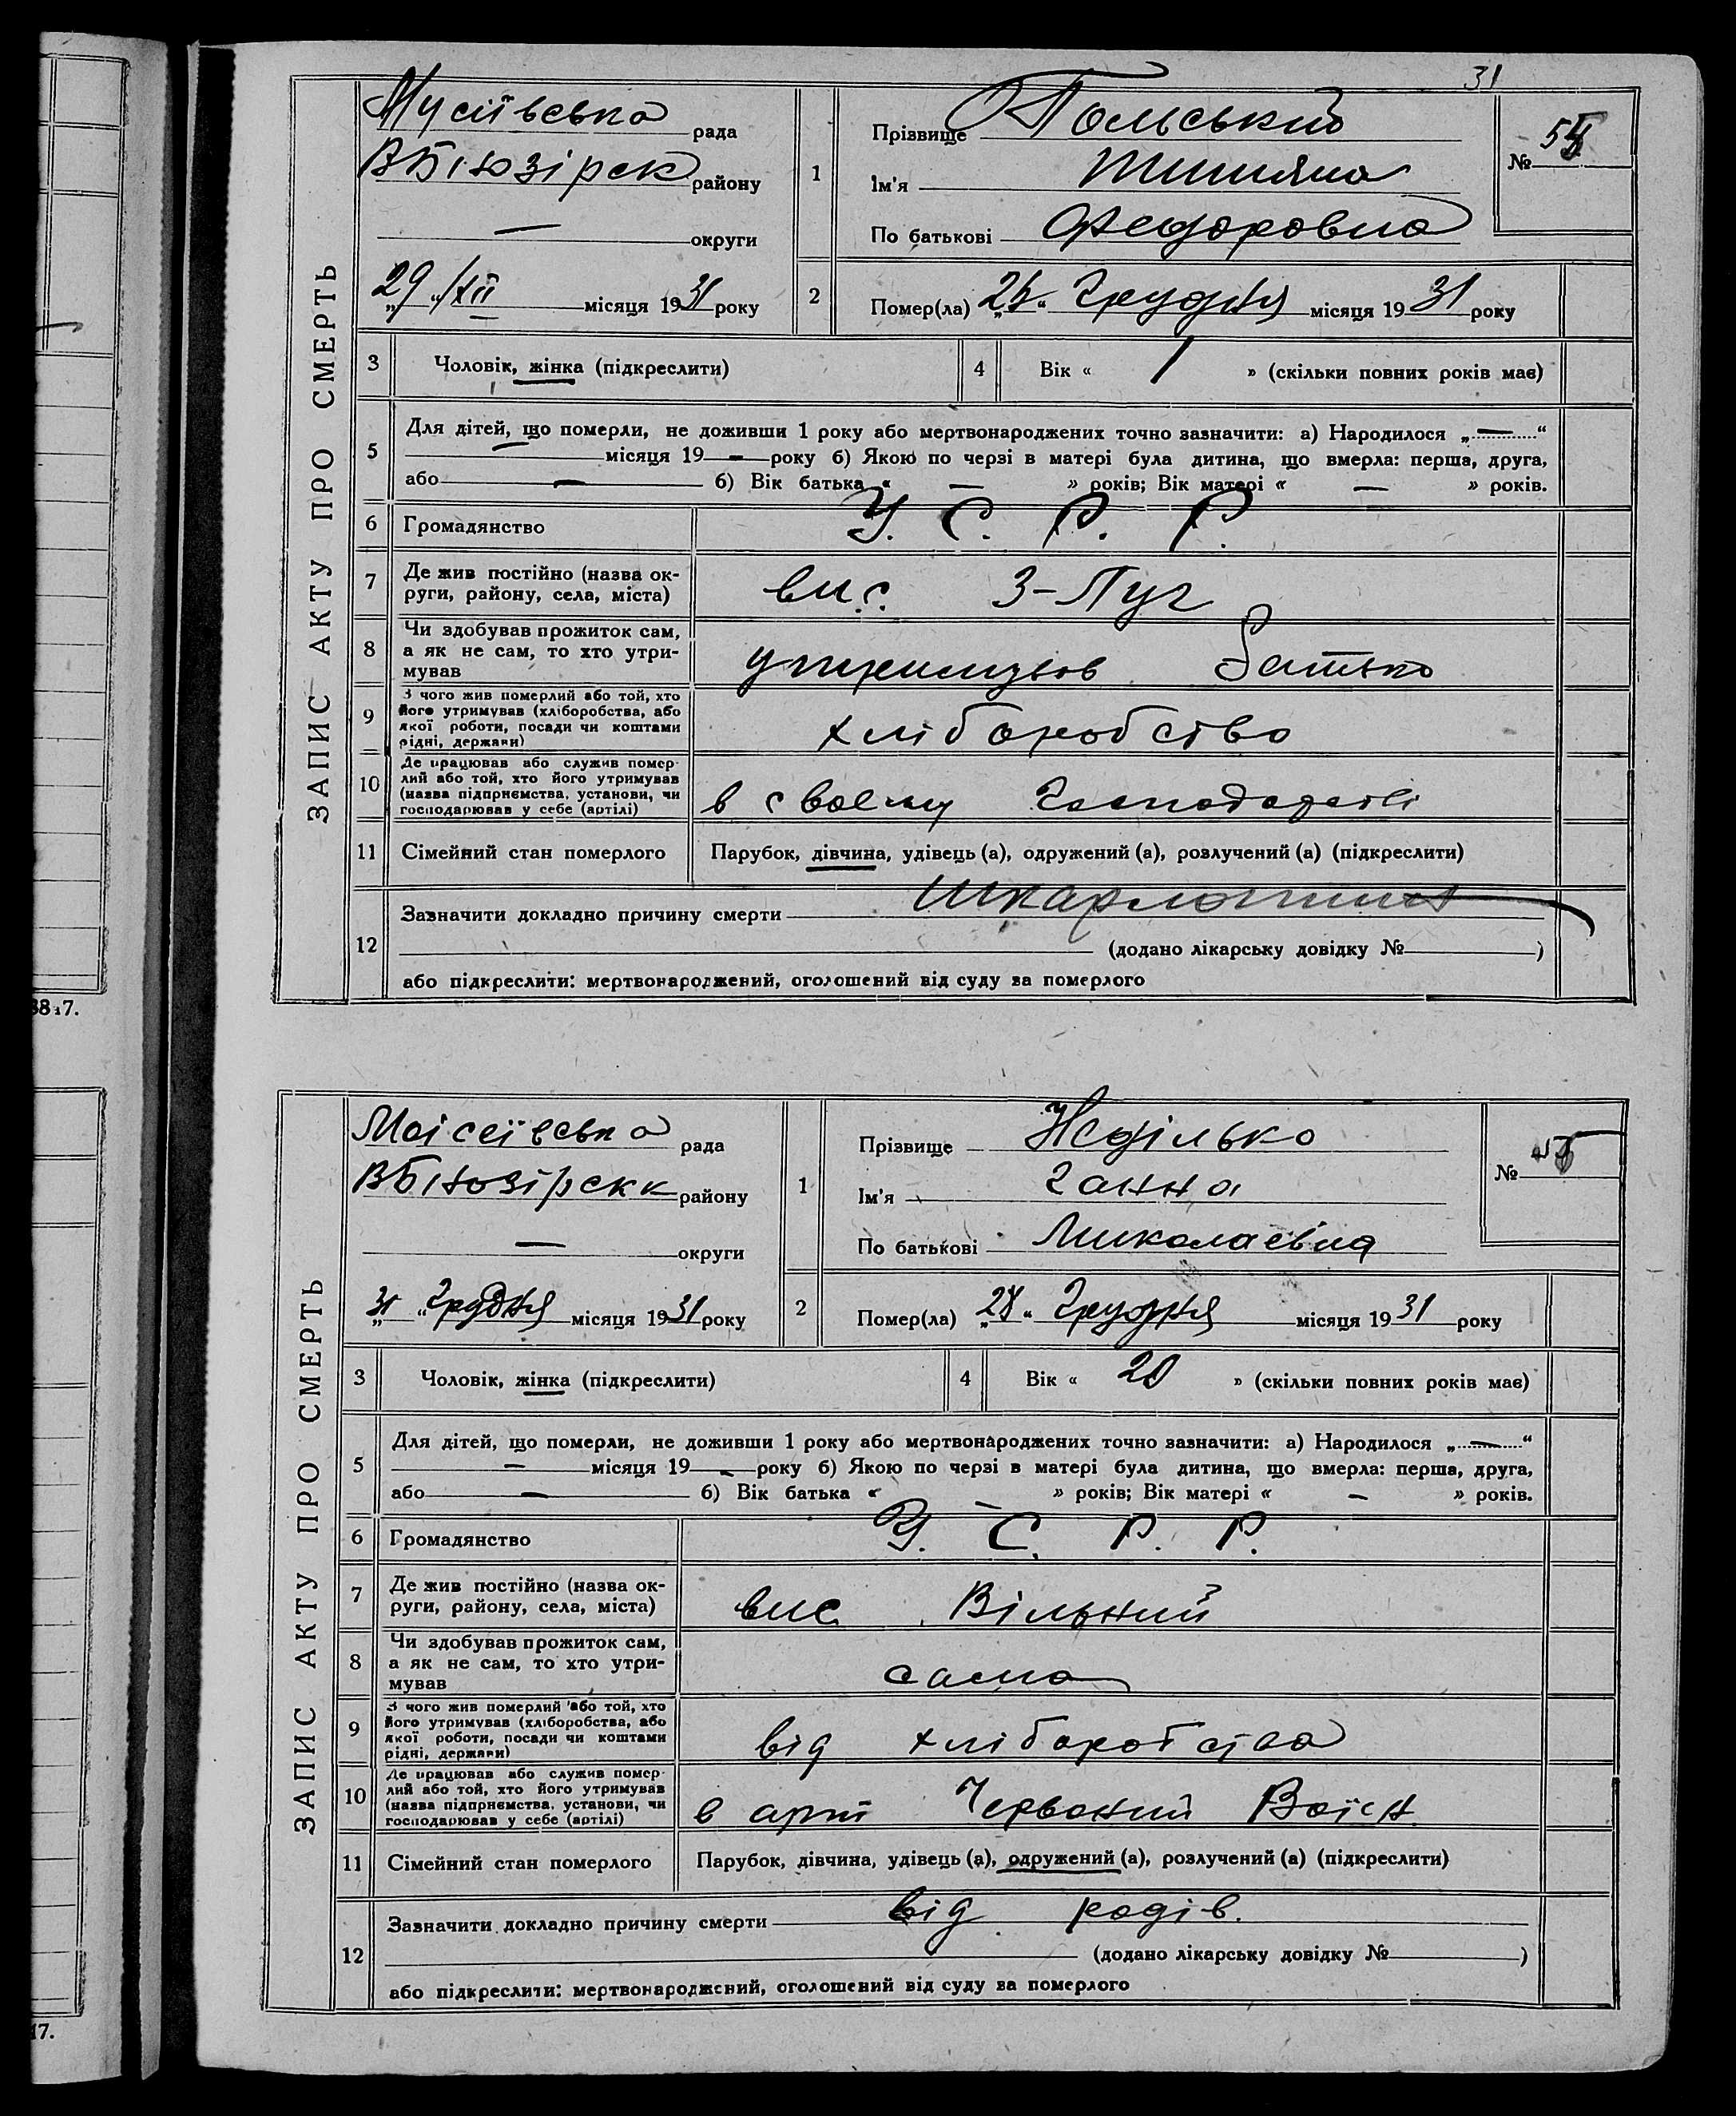 31
Мусіївська рада
ВБілозірск району
— округи
29 /XII місяця 1931 року
1
Прізвище Польський
Ім'я
По батькові Федоровна
№
2
Помер(ла) „ “ Грудня місяця 19 31 року
3
Чоловік, жінка (підкреслити)
4
Вік « 1 » (скільки повних років має)
5
Для дітей, що померли, не доживши 1 року або мертвонароджених точно зазначити: а) Народилося „ — “
— місяця 19 — року б) Якою по черзі в матері була дитина, що вмерла: перша, друга,
або — б) Вік батька « — » років; Вік матері « — » років.
6
Громадянство
У. С. Р. Р.
7
Де жив постійно (назва ок-
руги, району, села, міста)
вис. З-Луг
8
Чи здобував прожиток сам,
а як не сам, то хто утри-
мував
утримував батько
9
З чого жив померлий або той, хто
його утримував (хліборобства, або
якої роботи, посади чи коштами
рідні, держави)
хліборобство
10
Де працював або служив помер-
лий або той, хто його утримував
(назва підприємства, установи, чи
господарював у себе (артілі)
в своєму господарстві
11
Сімейний стан померлого
Парубок, дівчина, удівець (а), одружений (а), розлучений (а) (підкреслити)
12
Зазначити докладно причину смерти
(додано лікарську довідку № )
або підкреслити: мертвонароджений, оголошений від суду за померлого
ЗАПИС АКТУ ПРО СМЕРТЬ
Моісеївська рада
ВБілозірскк району
— округи
31 „ “ Грудня місяця 1931 року
1
Прізвище Неділько
Ім'я Ганна
По батькові Миколаєвна
№
2
Помер(ла) „28“ Грудня місяця 19 31 року
3
Чоловік, жінка (підкреслити)
4
Вік « 20 » (скільки повних років має)
5
Для дітей, що померли, не доживши 1 року або мертвонароджених точно зазначити: а) Народилося „ — “
— місяця 19 — року б) Якою по черзі в матері була дитина, що вмерла: перша, друга,
або — б) Вік батька « — » років; Вік матері « — » років.
6
Громадянство
У. С. Р. Р.
7
Де жив постійно (назва ок-
руги, району, села, міста)
вис. Вільний
8
Чи здобував прожиток сам,
а як не сам, то хто утри-
мував
сама
9
З чого жив померлий або той, хто
його утримував (хліборобства, або
якої роботи, посади чи коштами
рідні, держави)
від хліборобства
10
Де працював або служив помер-
лий або той, хто його утримував
(назва підприємства, установи, чи
господарював у себе (артілі)
в арт Червоний Воїн
11
Сімейний стан померлого
Парубок, дівчина, удівець (а), одружений (а), розлучений (а) (підкреслити)
12
Зазначити докладно причину смерти від родів.
(додано лікарську довідку № )
або підкреслити: мертвонароджений, оголошений від суду за померлого
ЗАПИС АКТУ ПРО СМЕРТЬ